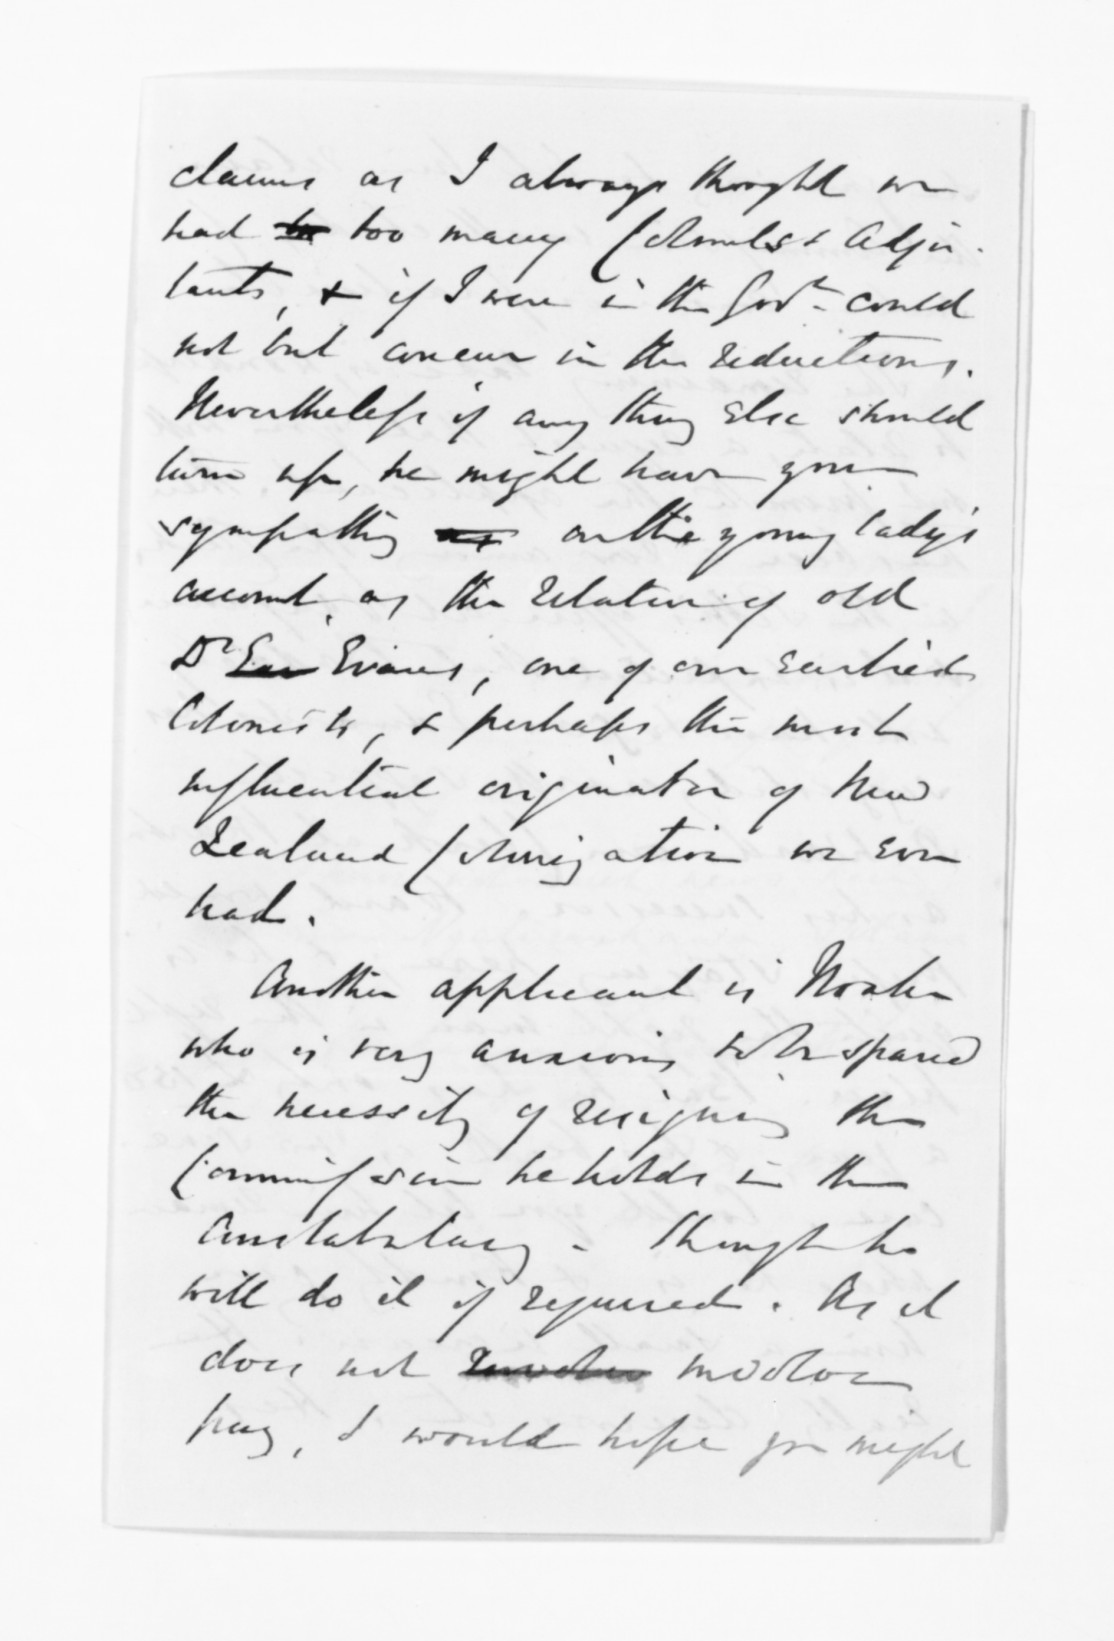 claims as I always thought we
had to too many Colonels & Adju-
tants, & if I were in the Govt. could
not but concur in the reductions.
Nevertheless if any thing else should
turn up, he might have your
sympathy as on the young lady's
account, as the relative of old
Dr Eva Evans, one of our earliest
Colonists, & perhaps the most
influential originator of New
Zealand Colonization we ever
had.
Another applicant is
who is very anxious to be spared
the necessity of resigning the
Commission he holds in the
Constabulary - though he
will do it if required. As it
does not involve
pay, I would hope you might